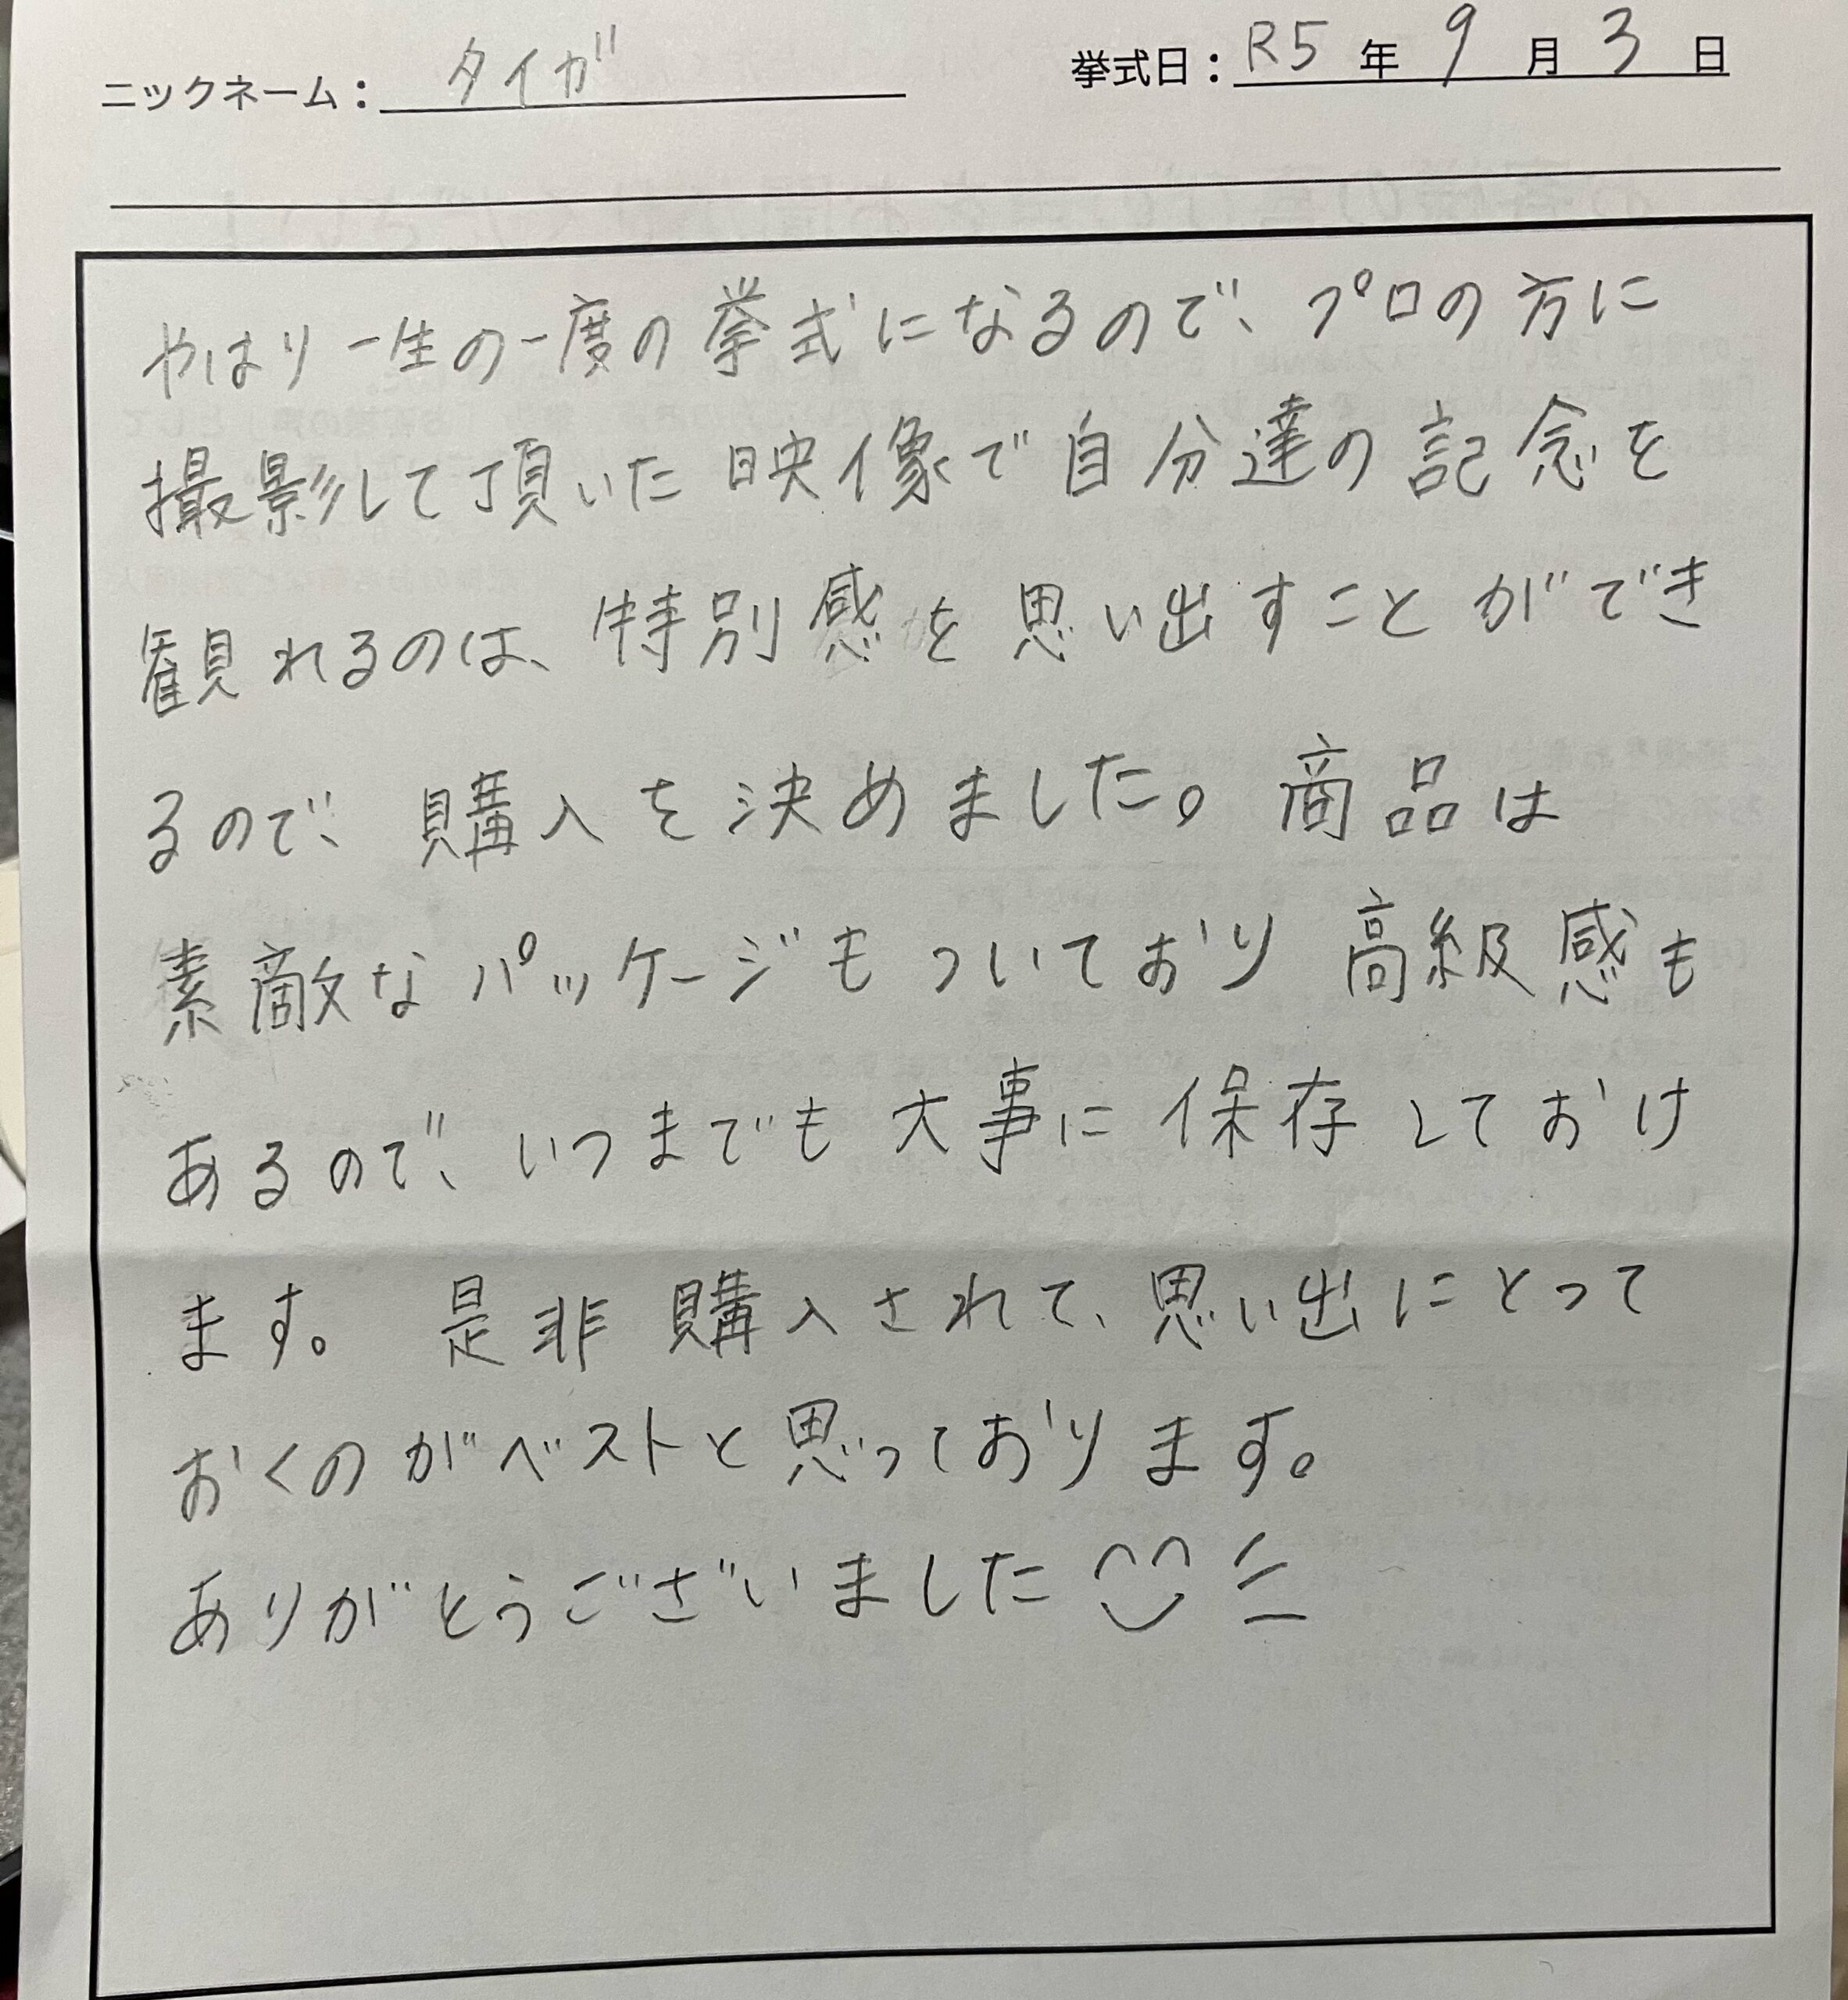 ニックネーム：タイガ 挙式日：R5年9月3日
やはり一生の一度の挙式になるので、プロの方に
撮影して頂いた映像で自分達の記念を
観れるのは、特別感を思い出すことができ
るので、購入を決めました。商品は
素敵なパッケージもついており高級感も
あるので、いつまでも大事に保存しておけ
ます。是非購入されて、思い出にとって
おくのがベストと思っております。
ありがとうございました